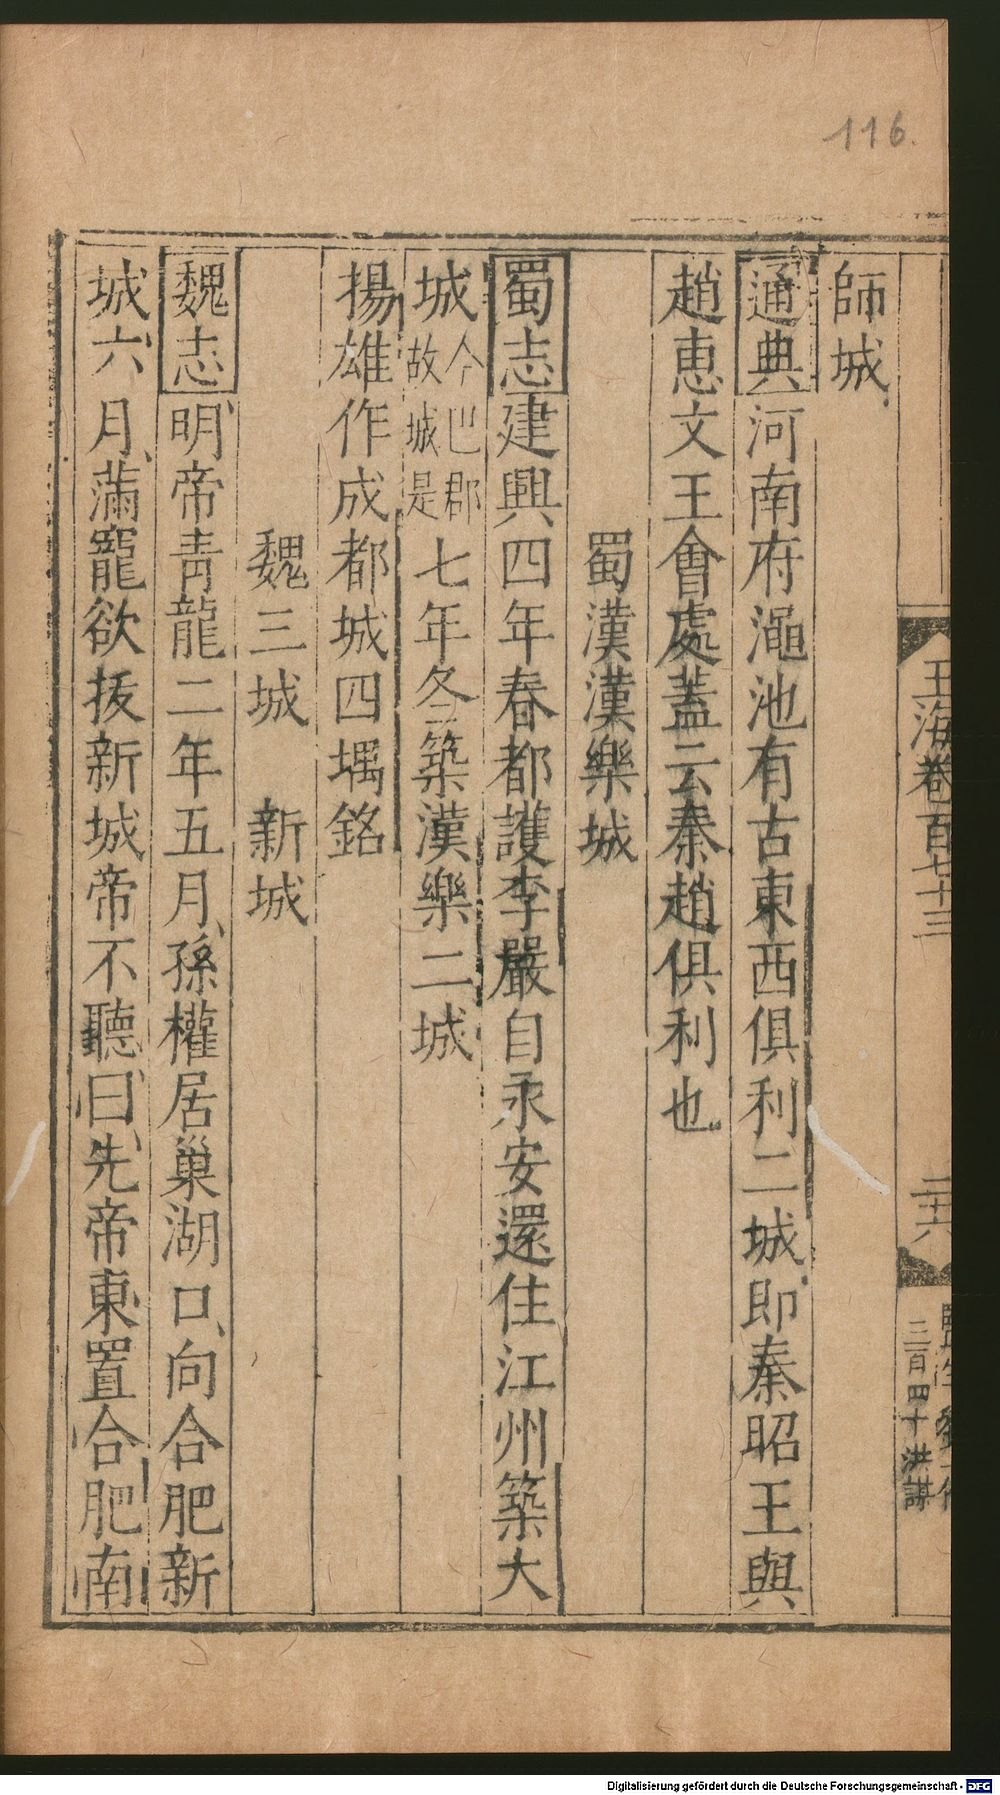 116.
玉海卷百七十三
二十六
三百四十 洪謀
師城
通典河南府澠池有古東西俱利二城即秦昭王與
趙惠文王會處蓋云秦趙俱利也
蜀漢漢樂城
蜀志建興四年春都護李嚴自永安還住江州築大
城今巴郡故城是七年冬築漢樂二城
揚雄作成都城四堣銘
魏三城 新城
魏志明帝青龍二年五月孫權居巢湖口向合肥新
城六月滿寵欲拔新城帝不聽曰先帝東置合肥南
Digitalisierung gefördert durch die Deutsche Forschungsgemeinschaft - DFG